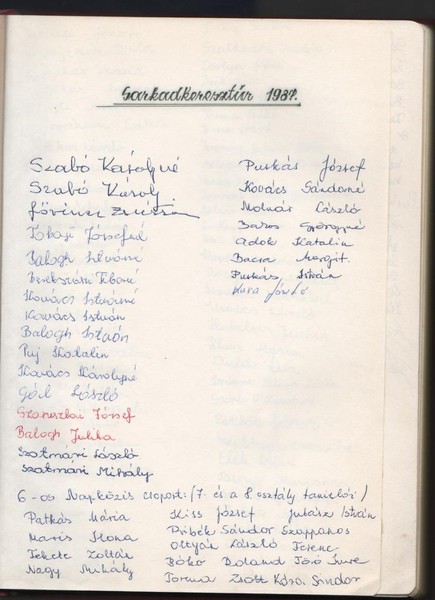 Sarkadkeresztúr 1987.
Szabó Károlyné
Szabó Károly
Tokaji Józsefné
Balogh Istvánné
Tiborné
Kovács Istvánné
Kovács István
Balogh István
Puj Katalin
Kovács Károlyné
Gál László
József
Balogh Julika
Szatmári László
Szatmári Mihály
Purkás József
Kovács Sándorné
Molnár László
Györgyné
Adok Katalin
Margit.
Purkás István
6-os Napközis csoport: (7. és a 8 osztály tanulói)
Patkás Mária Kiss József Juhász István
Maris Ilona Pribék Sándor Szappanos
Fekete Zoltán László Ferenc
Nagy Mihály Roland Imre
Torma Zsolt Sándor